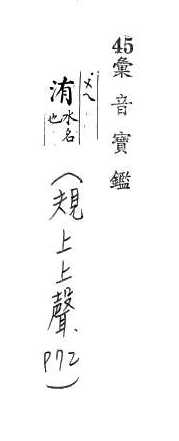 45彙音寶鑑
洧水名也
(規上上聲、P72)